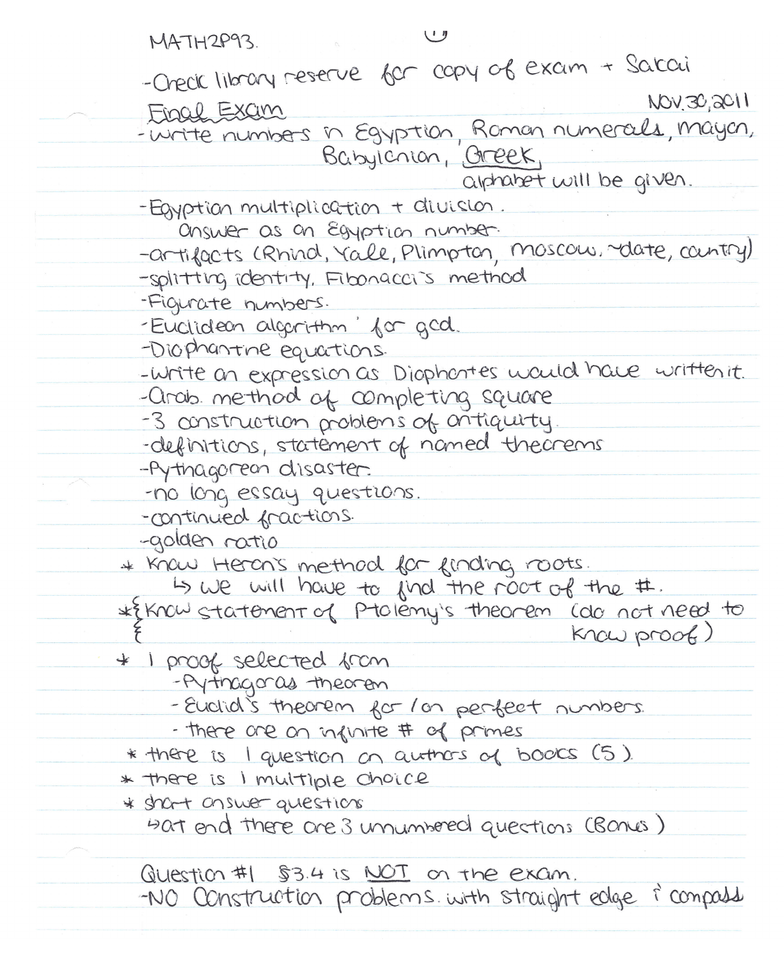 MATH2P93.
-Check library reserve for copy of exam + Sakai
Final Exam NOV.30,2011
-write numbers in Egyption, Roman numerals, mayan,
Babylonian, Greek,
alphabet will be given.
-Egyption multiplication + division.
answer as an Egyption number.
-artifacts (Rhind, Yale, Plimpton, Moscow. ~date, country)
-splitting identity, Fibonacci's method
-Figurate numbers.
-Euclidean algorithm for gcd.
-Diophantine equations.
-write an expression as Diophantes would have written it.
-Arab. method of completing square
-3 construction problems of antiquity
-definitions, statement of named theorems
-Pythagorean disaster.
-no long essay questions.
-continued fractions.
-golden ratio
* Know Heron's method for finding roots.
↳ we will have to find the root of the #.
*{Know statement of Ptolemy's theorem (do not need to
{ know proof)
* 1 proof selected from
-Pythagoras theorem
- Euclid's theorem for/on perfect numbers
- there are an infinite # of primes
* there is 1 question on authors of books (5).
* there is 1 multiple choice
* short answer questions
↳at end there are 3 unnumbered questions (Bonus)
Question #1 §3.4 is NOT on the exam.
-NO Construction problems. with straight edge & compass